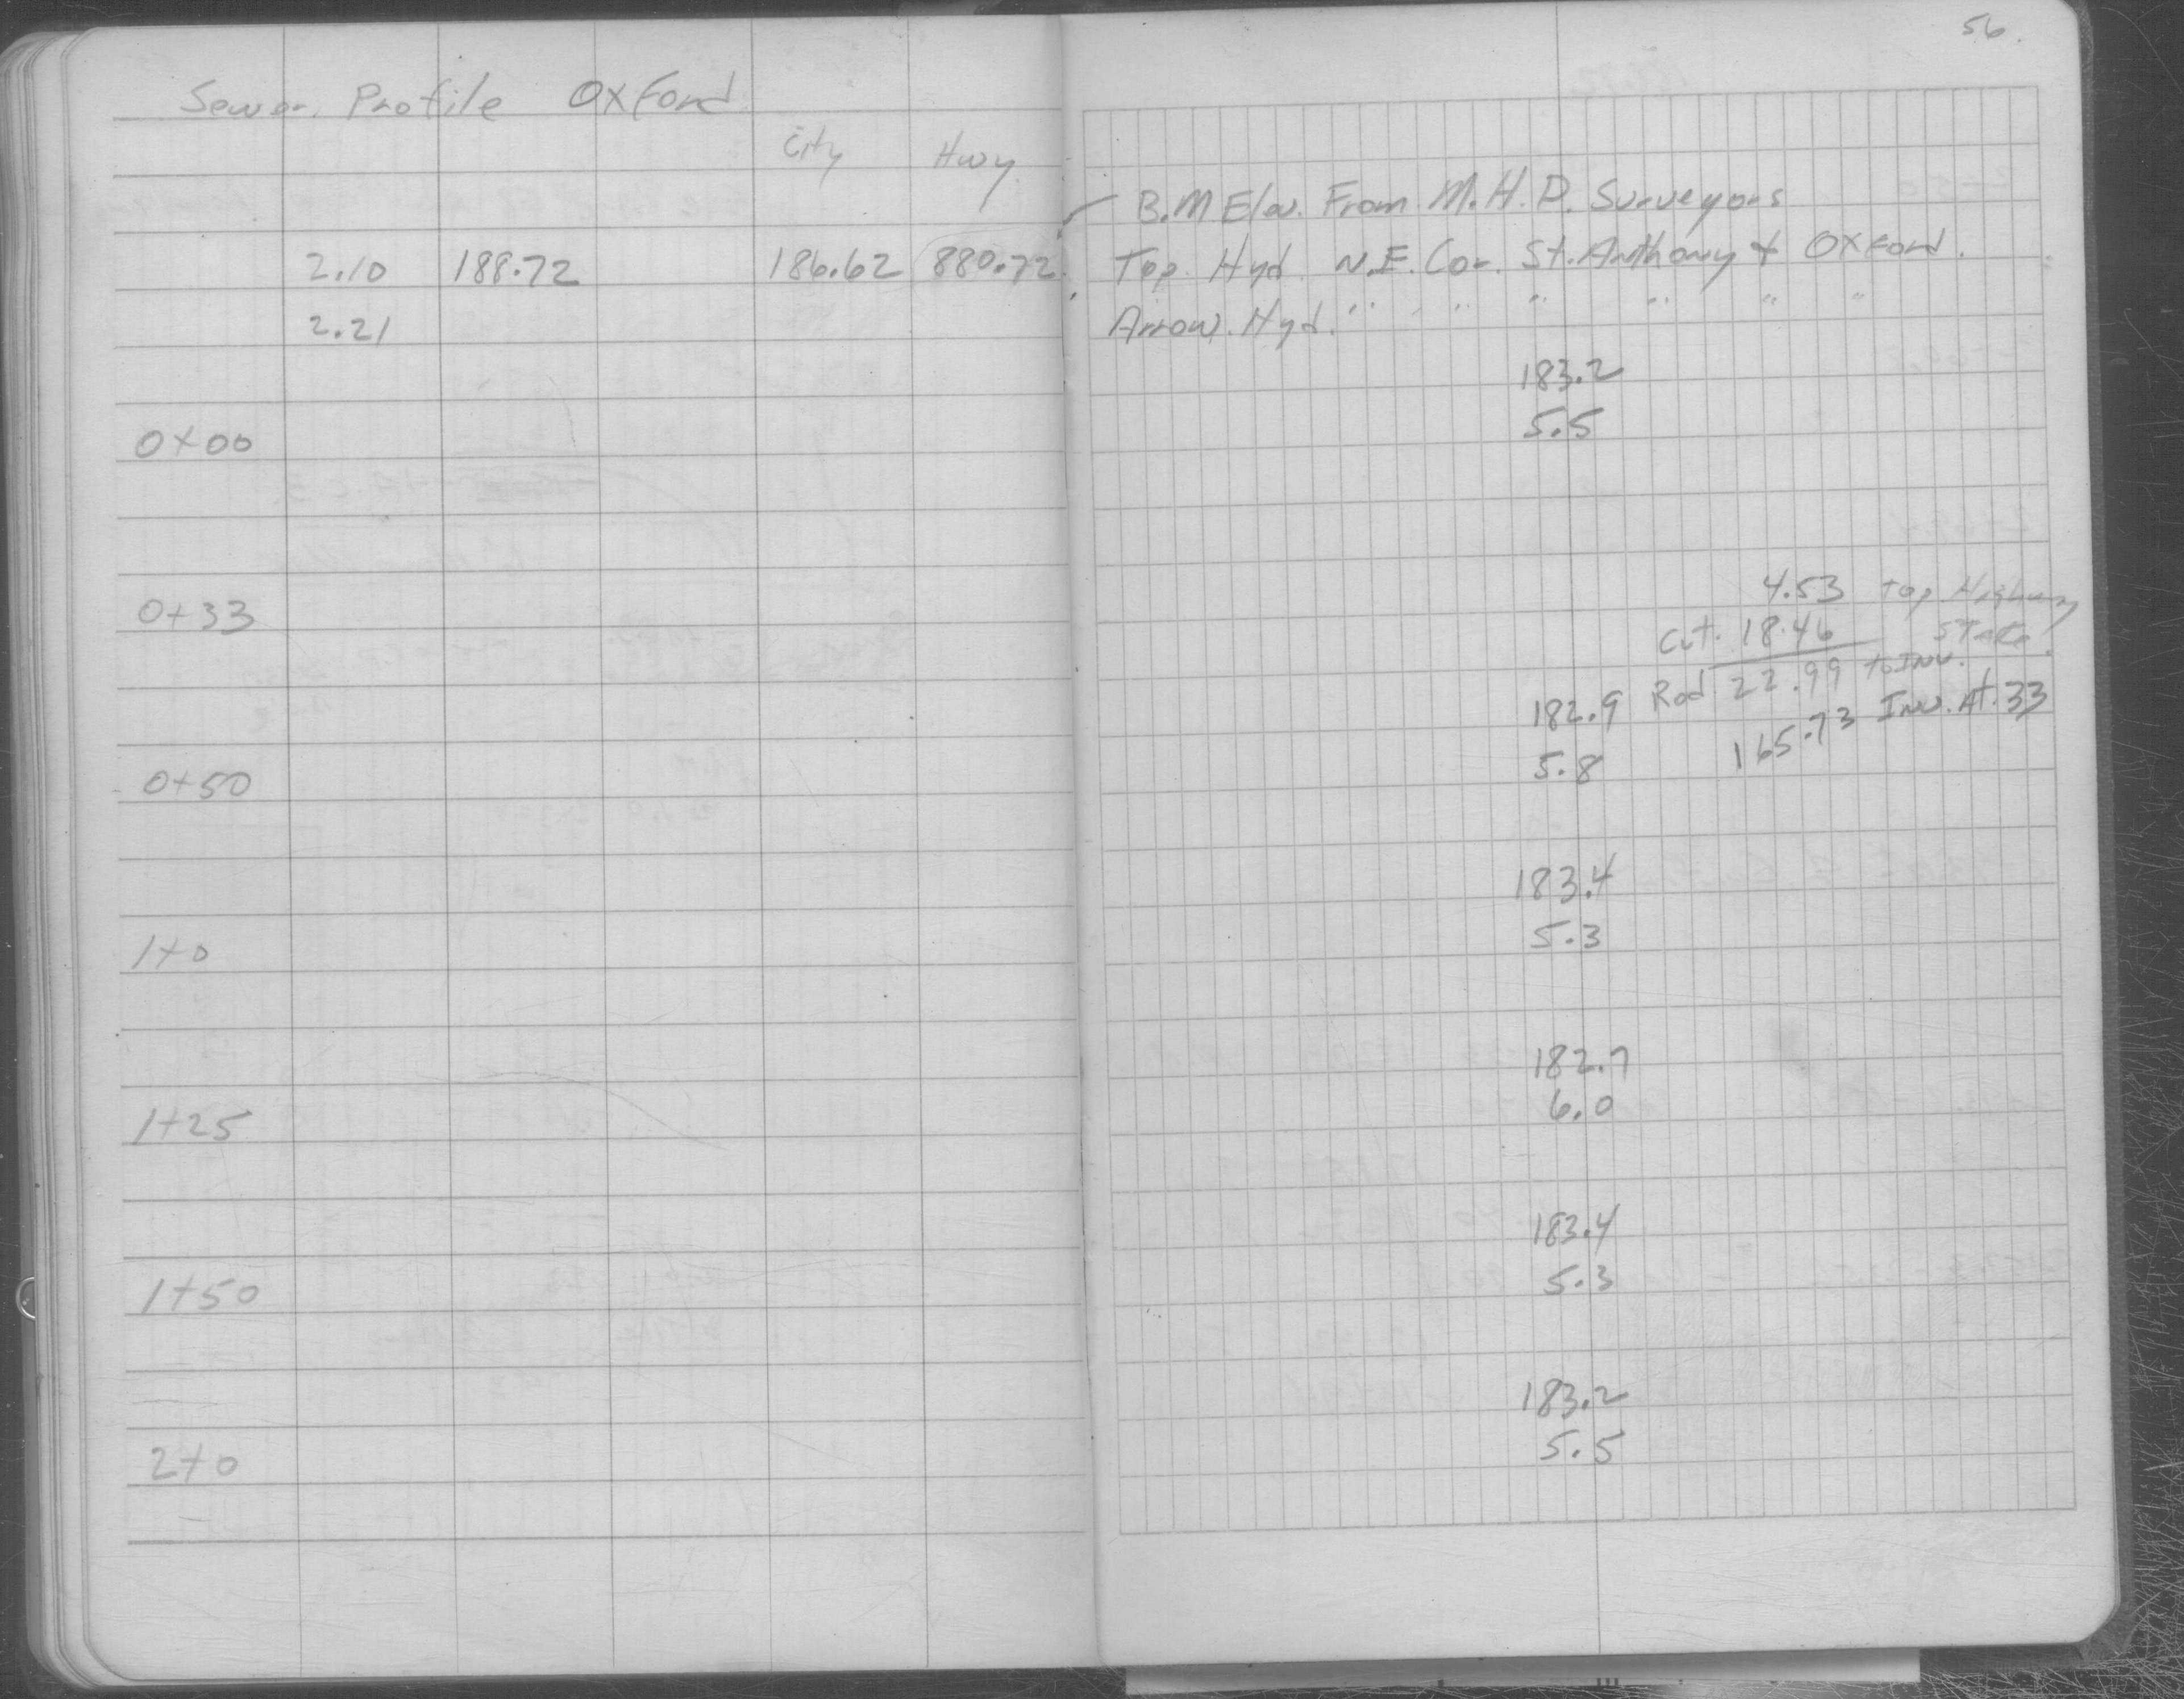 56.
Sewer. Profile Oxford
City Hwy.
B.M Elev. From M.H.D. Surveyors
2.10 188.72 186.62 880.72 Top Hyd. N.E. Cor. St. Anthony + Oxford.
2.21 Arrow. Hyd. " " " " " "
183.2
5.5
0+00
4.53 top Highway
0+33
Cut. 18.46 Stake
Rod 22.99 to Inv.
182.9
165.73 Inv. At. 33
5.8
0+50
183.4
5.3
1+0
182.7
6.0
1+25
183.4
5.3
1+50
183.2
5.5
2+0